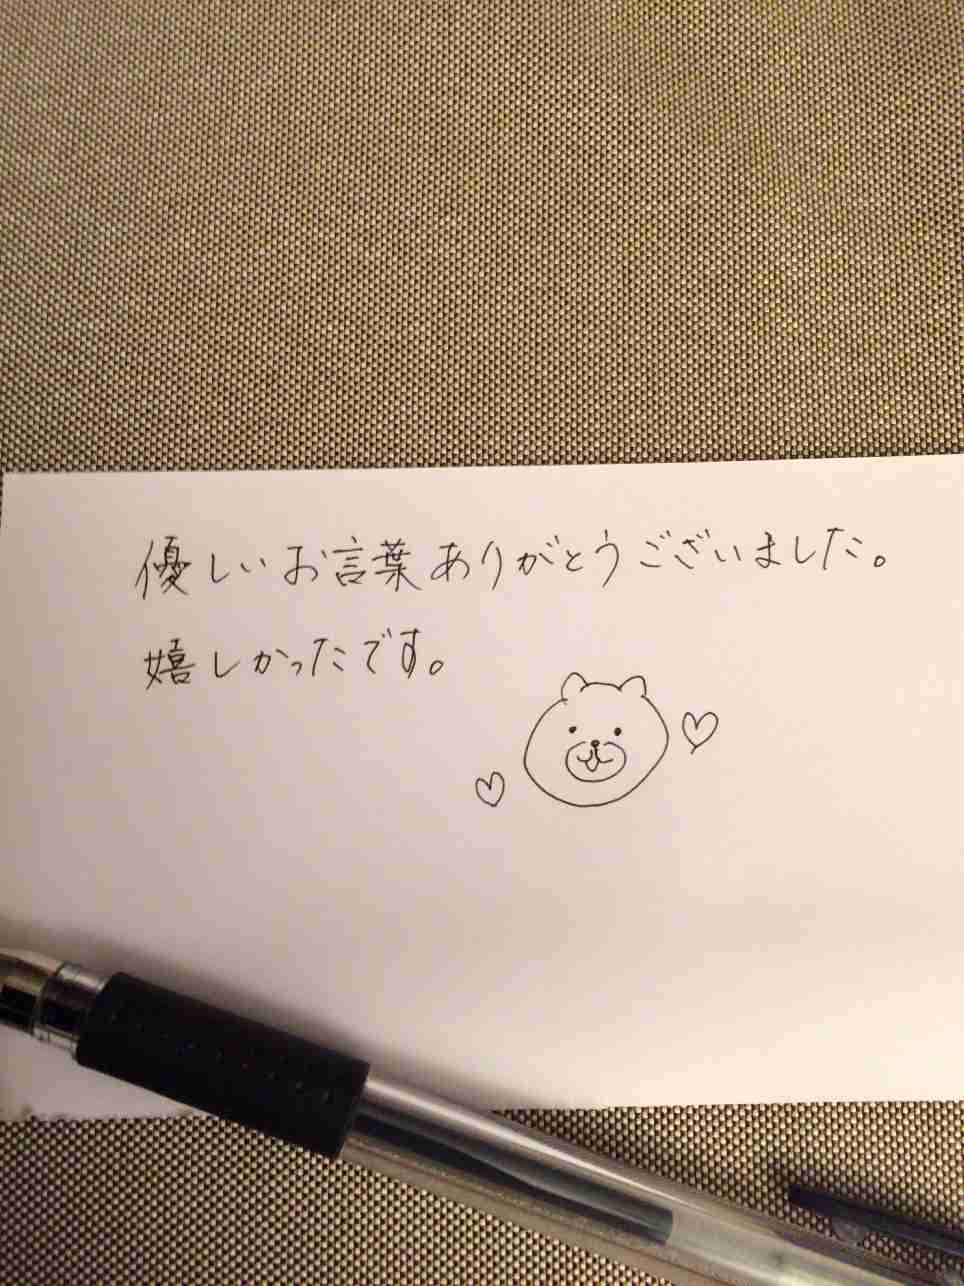 優しいお言葉ありがとうございました。
嬉しかったです。